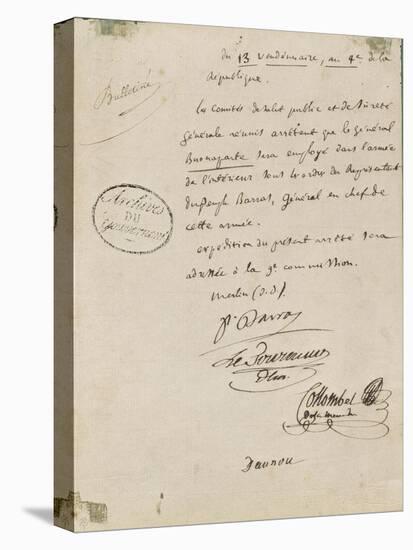 du 13 Vendémiaire, an 4e. de la
République.
Bulletiné
Les Comités de Salut public et de Sûreté
générale réunis arrêtent que le général
Buonaparte sera employé dans l'armée
de l'intérieur sous les ordres du Représentant
du Peuple Barras, Général en chef de
cette armée.
Archives
DU
Gouvernement
expedition du présent arrêté sera
adressée à la 9e. commission.
Merlin (d.D).
Barras
Collombel
Daunou